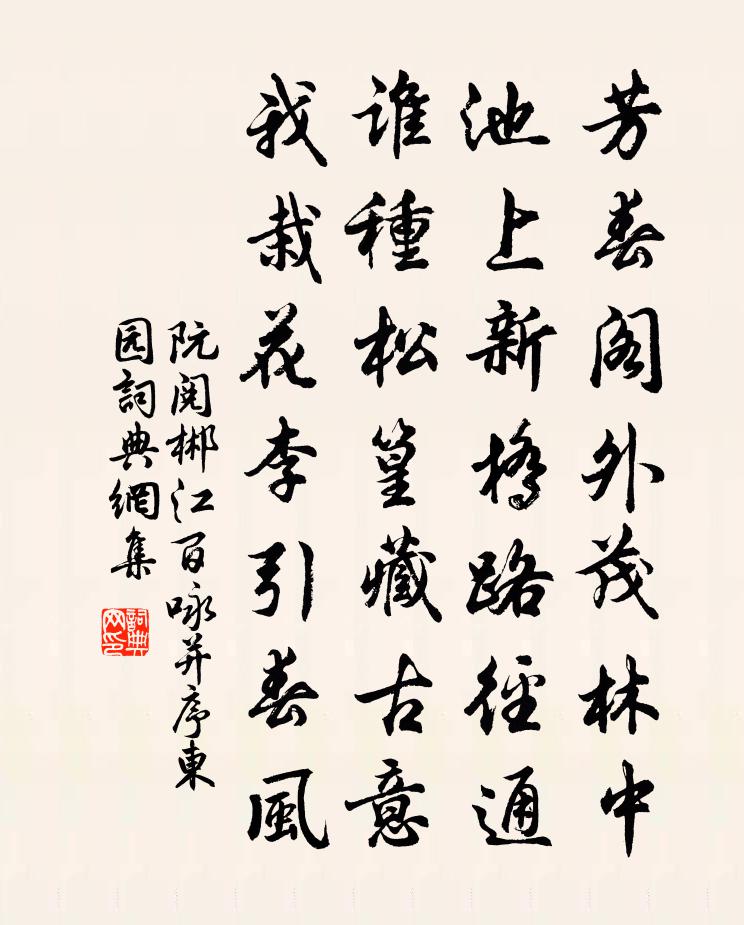 芳春阁外茂林中
池上新橋路径通
谁種松篁藏古意
我栽花李引春風
阮阅郴江百咏并序東
园詞典網集
詞典网印